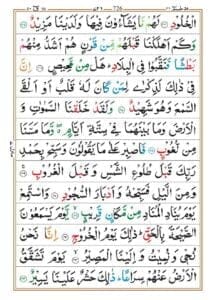 الْخُلُوْدِ ۝ لَهُمْ مَّا يَشَآءُوْنَ فِيْهَا وَلَدَيْنَا مَزِيْدٌ ۝
وَكَمْ اَهْلَكْنَا قَبْلَهُمْ مِّنْ قَرْنٍ هُمْ اَشَدُّ مِنْهُمْ
بَطْشًا فَنَقَّبُوْا فِى الْبِلَادِ ؕ هَلْ مِنْ مَّحِيْصٍ ۝ اِنَّ
فِىْ ذٰلِكَ لَذِكْرٰى لِمَنْ كَانَ لَهٗ قَلْبٌ اَوْ اَلْقَى
السَّمْعَ وَهُوَ شَهِيْدٌ ۝ وَلَقَدْ خَلَقْنَا السَّمٰوٰتِ وَ
الْاَرْضَ وَمَا بَيْنَهُمَا فِىْ سِتَّةِ اَيَّامٍ ۖ وَّمَا مَسَّنَا
مِنْ لُّغُوْبٍ ۝ فَاصْبِرْ عَلٰى مَا يَقُوْلُوْنَ وَسَبِّحْ بِحَمْدِ
رَبِّكَ قَبْلَ طُلُوْعِ الشَّمْسِ وَقَبْلَ الْغُرُوْبِ ۝
وَمِنَ الَّيْلِ فَسَبِّحْهُ وَاَدْبَارَ السُّجُوْدِ ۝ وَاسْتَمِعْ
يَوْمَ يُنَادِ الْمُنَادِ مِنْ مَّكَانٍ قَرِيْبٍ ۝ يَّوْمَ يَسْمَعُوْنَ
الصَّيْحَةَ بِالْحَقِّ ؕ ذٰلِكَ يَوْمُ الْخُرُوْجِ ۝ اِنَّا نَحْنُ
نُحْىٖ وَنُمِيْتُ وَاِلَيْنَا الْمَصِيْرُ ۝ يَوْمَ تَشَقَّقُ
الْاَرْضُ عَنْهُمْ سِرَاعًا ؕ ذٰلِكَ حَشْرٌ عَلَيْنَا يَسِيْرٌ ۝